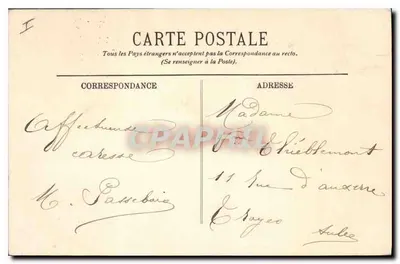 I
CARTE POSTALE
Tous les Pays étrangers n'acceptent pas la Correspondance au recto.
(Se renseigner à la Poste).
CORRESPONDANCE
Affectueuse
caresse
M. Passebois
ADRESSE
Madame
Vve Thiéblemont
11 Rue d'auxerre
Troyes
Aube
CPAPHIL